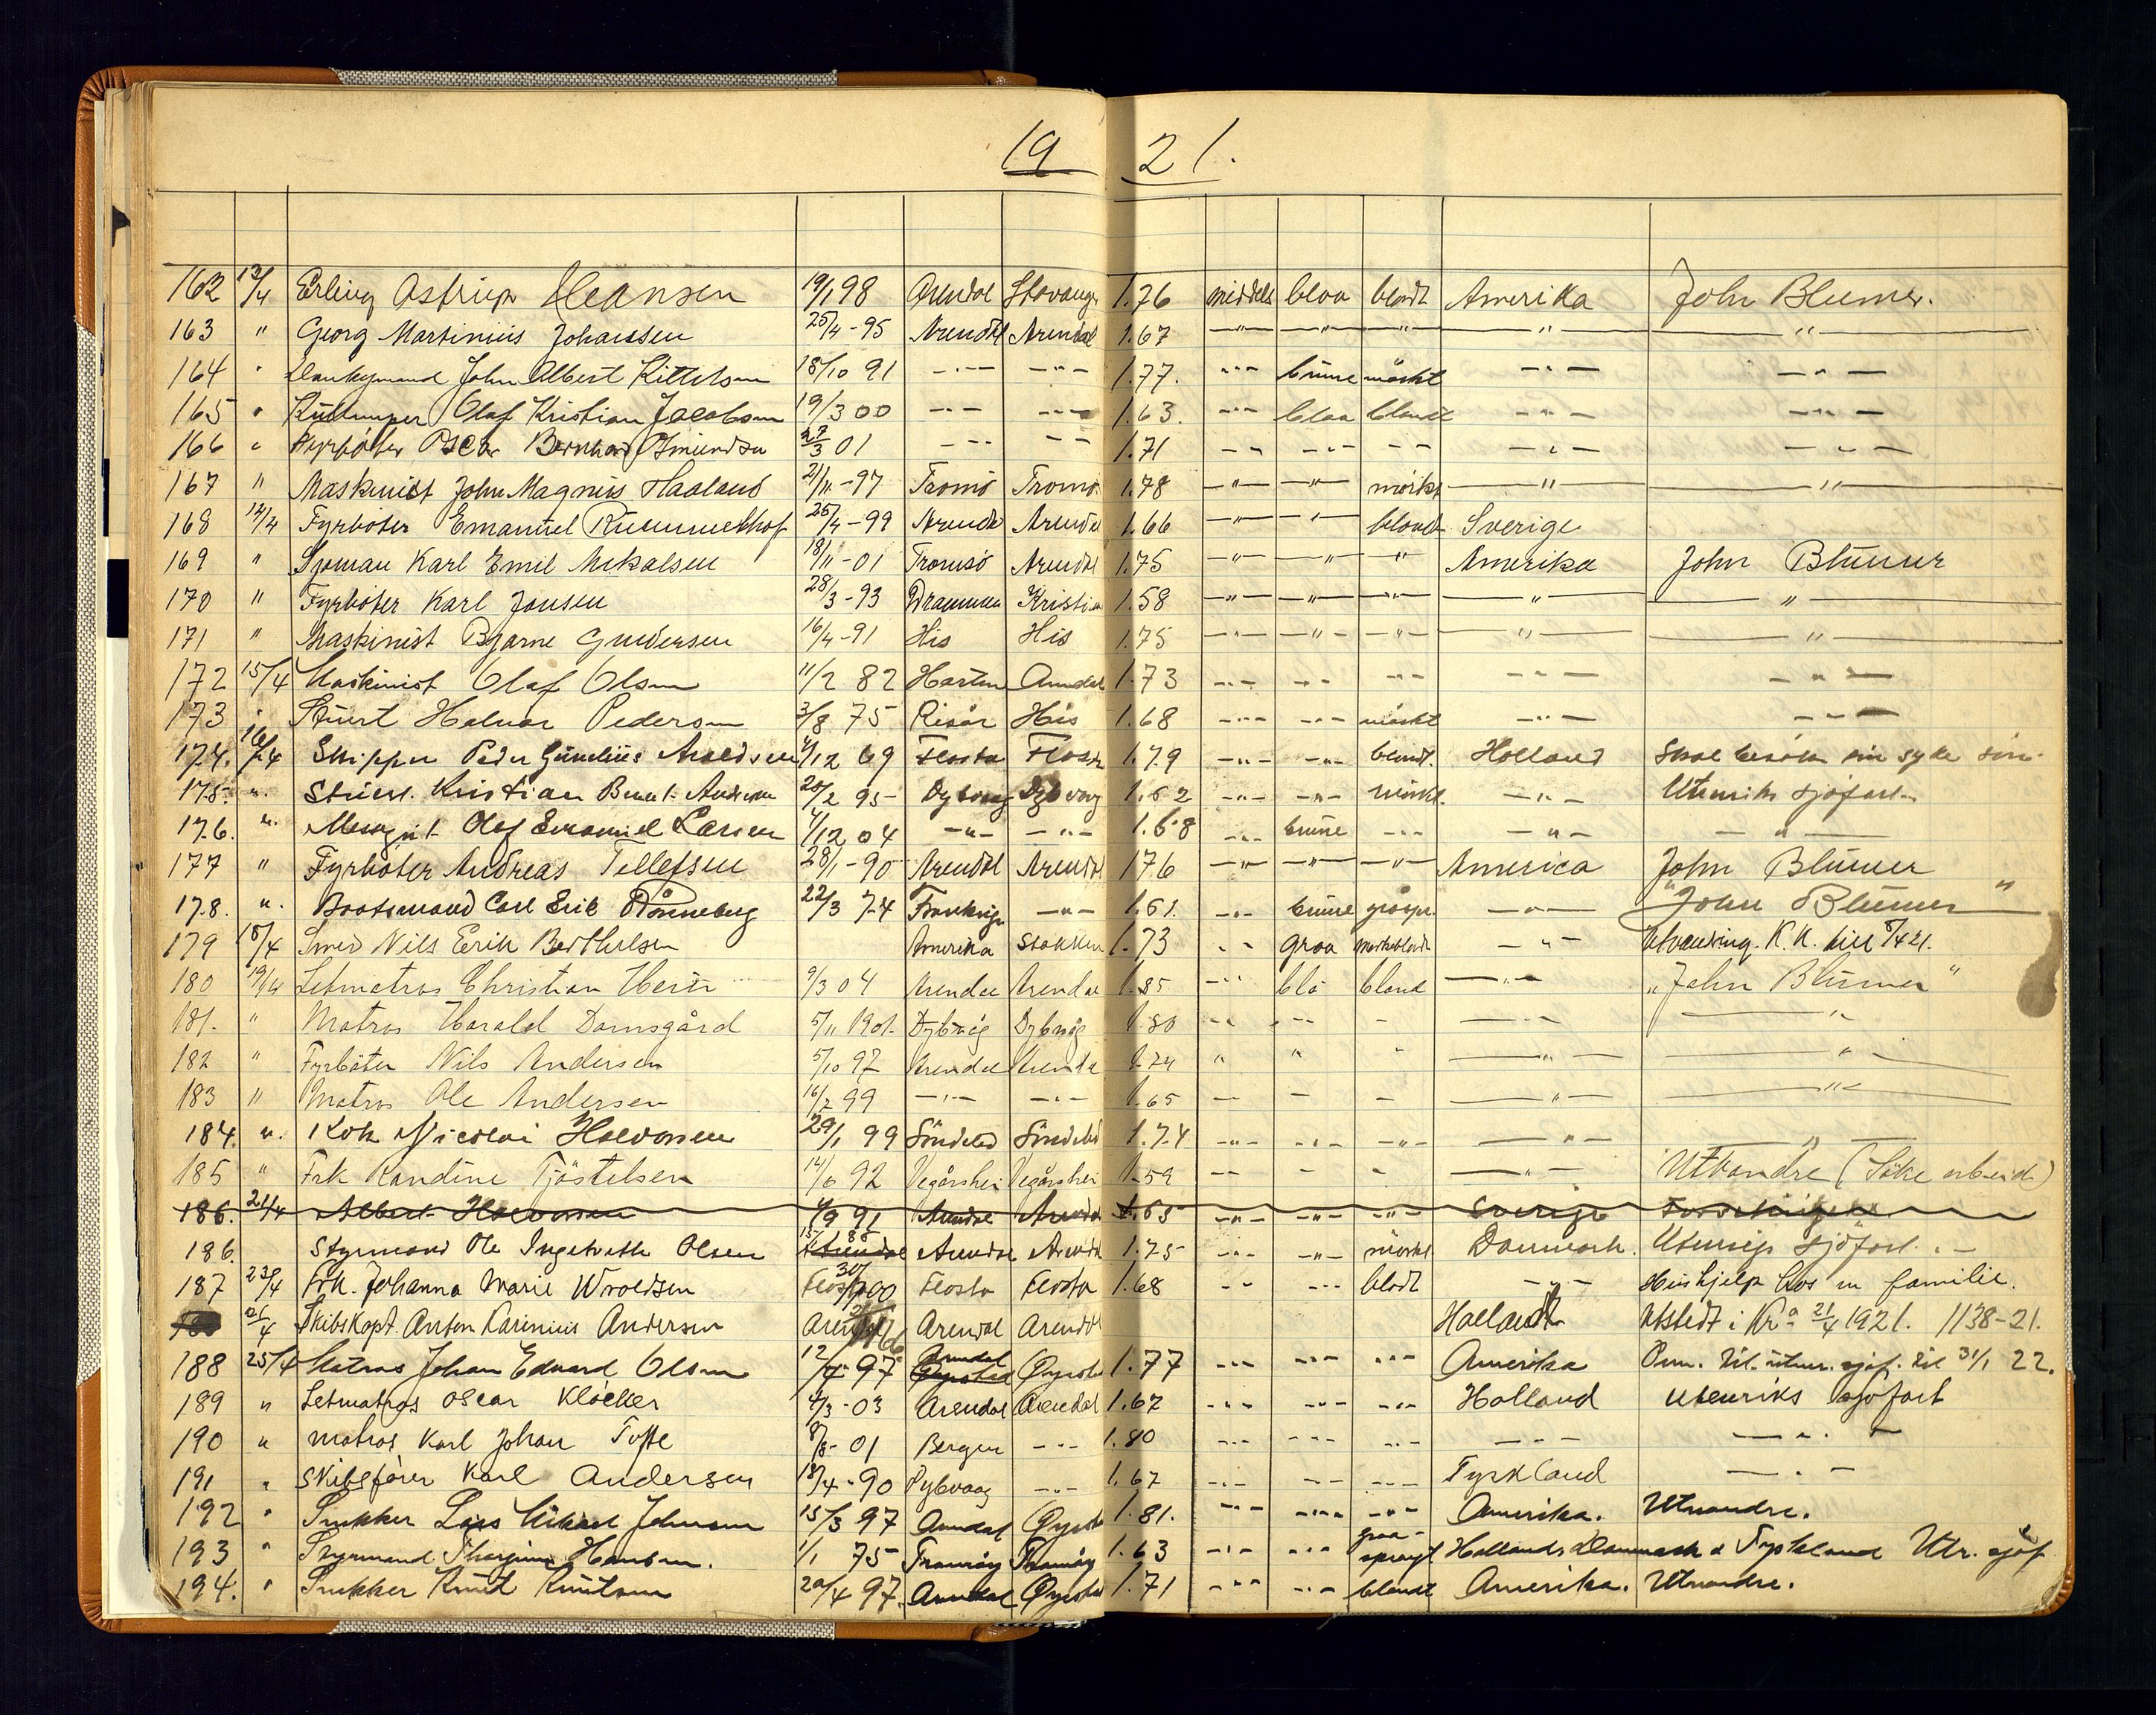 19 21.
162 13/4 Erling Astrup Hansen 19/1 98 Arendal Stavanger 1.76 middels blaa blondt Amerika John Blumer.
163 " Georg Martinius Johanssen 25/4-95 Arendal Arendal 1.67 —"— —"— " —"— —"—
164 " Donkeymand John Albert Kittelsen 18/10 91 -"- -"- 1.77. -"- brune mörkt -"- -"-
165 " Olaf Kristian Jacobsen 19/3 00 -"- -"- 1.63. -"- blaa blondt -"- -"-
166 " Fyrböter Oscar Bernhard Osmundsen 27/3 01 -"- -"- 1.71 -"- -"- -"- -"- -"-
167 " Maskinist John Magnus Haaland 21/11-97 Tromö Tromö 1.78 -"- -"- mörkt —"— —"—
168 14/4 Fyrböter Emanuel 25/4-99 Arendal Arendal 1.66 -"- -"- blondt Sverige
169 " Sjöman Karl Emil Mikalsen 18/11-01 Tromsö Arendal 1.75 -"- -"- -"- Amerika John Blumer
170 " Fyrböter Karl Jonsen 28/3-93 Drammen Kristia 1.58 -"- -"- -"- —"— —"—
171 " Maskinist Bjarne Gundersen 16/4-91 His His 1.75 -"- -"- -"- —"— —"—
172 15/4 Maskinist Olaf Olsen 11/2 82 Arendal 1.73 -"- -"- -"- -"- -"-
173 " Stuert Halvor Pedersen 3/8 75 Risör His 1.68 -"- -"- mörkt -"- -"-
174. 16/4 Skipper Peder Gundius Aroldsen 4/12 69 Flosta Flosta 1.79 -"- -"- blondt. Holland Skal besöke sin syke sön.
175. ". Stuert. Kristian Bernt Andersen 20/2 95 Dybvaag Dybvaag 1.62 -"- -"- mörkt. -"- Utenriks sjöfart.
176. ". Messegut Olaf Emanuel Larsen 4/12 04 -"- -"- 1.68 -"- brune -"- -"- -"-
177 " Fyrböter Andreas Tellefsen 28/1-90 Arendal Arendal 176 -"- -"- -"- America John Blumer
178. ". Baatsmand Carl Erik Rönneberg 22/3 74 Frankrige -"- 1.61. -"- brune -"- "John Blumer"
179 18/4 Smed Nils Erik Berthelsen Amerika Stokken 1.73 " graa mörkeblondt -"- Utvandring. K.K. bill 8/4 21.
180 19/4 Letmatros Christian Hein 9/3 04 Arendal Arendal 1.85 -"- blå blond -"- "John Blumer"
181. " Matros Harald Damsgård 5/11 1901. Dybvåg Dybvåg 1.80 -"- -"- - -"- -"-
182 " Fyrböter Nils Andersen 5/10 97 Arendal Arendal 1.74 " " " -"- "
183 " Matros Ole Andersen 16/2 99 -"- -"- 1.65 - - - -"- -"-
184. ". Kok Nicolai Halvorsen 29/1 99 Söndeled Söndeled 1.74 -"- -"- -"- -"- -"-
185 " Frk Kandine Tjöstelsen 14/6 92 Vegårshei Vegårshei 1.59 -"- - - -"- Utvandre (Söke arbeide)
186. 21/4 Albert Halvorsen 4/9 91 Arendal Arendal 1.65 -"- -"- -"- Sverige
186. Styrmand Ole Ingebreth Olsen 15/7 88 Arendal Arendal 1.75 -"- -"- mörkt Danmark. Utenrigs sjöfart. -
187 23/4 Frk. Johanna Marie Wroldsen 30/7 00 Flosta Flosta 1.68 -"- -"- blodt -"- Hushjelp hos en familie.
25/4 Skibskapt. Anton Karinius Andersen Arendal Arendal Holland Utstedt i Kr.a 21/4 1921. 1138-21.
188 25/4 Matros Johan Edvard Olsen 12/4-97 Arendal Öyestad 1.77 -"- -"- -"- Amerika Perm. til utenr. sjöf. til 31/1 22.
189 " Letmatros Oscar Klöcker 4/3-03 Arendal Arendal 1.67 -"- -"- -"- Holland Utenriks sjöfart
190 " Matros Karl Johan Tofte 8/8-01 Bergen -"- 1.80 -"- -"- -"- -"- -"-
191 " Skibsförer Karl Andersen 18/4-90 Dybvaag -"- 1.67 -"- -"- -"- Tyskland -"-
192 " Snekker Lars Mikael Johnsen 15/3 97 Arendal Öyestad 1.81. -"- -"- -"- Amerika. Utvandre.
193 " Styrmand Hansen. 1/1 75 Tromöy Tromöy 1.63 -"- -"- graa-sprengt Holland, Danmark & Tyskland Utr. sjöf
194. " Snekker Knut Knutsen 20/4 97. Arendal Öyestad 1.71 -"- -"- blondt Amerika. Utvandre.